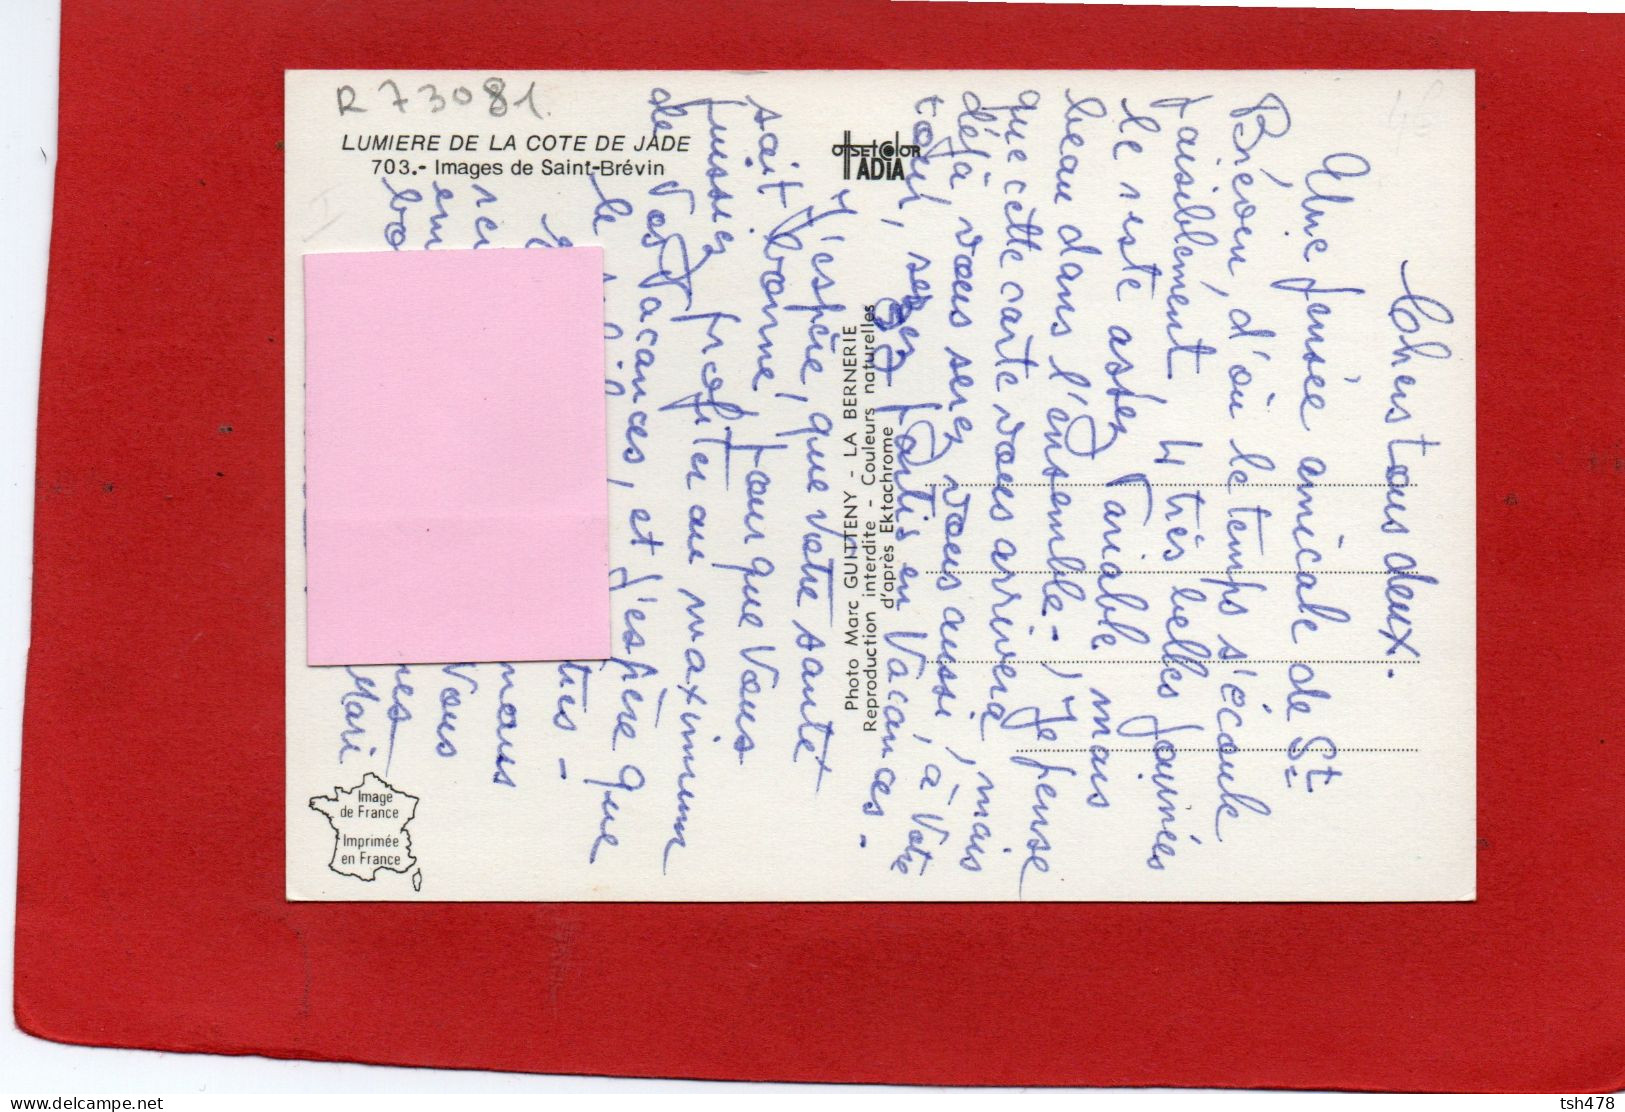 R 73081.
LUMIERE DE LA COTE DE JADE
703.- Images de Saint-Brévin
OFFSETCOLOR
ADIA
Photo Marc GUITTENY - LA BERNERIE
Reproduction interdite - Couleurs naturelles
d'après Ektachrome
Image
de France
Imprimée
en France
Chers tous deux.
Une pensée amicale de St
Brévin, d'où le temps s'écoule
paisiblement, 4 très belles journées
le reste assez variable mais
beau dans l'ensemble. - Je pense
que cette carte vous arrivera
déjà vous serez vous aussi, mais
tout, serez partis en Vacances. -
à Votre
J'espère, que votre santé
sait bonne, pour que Vous
puissiez profiter au maximum
de Vos Vacances, et j'espère que
le
tres -
nous
en Vous
bo
Mari
tsh478
www.delcampe.net